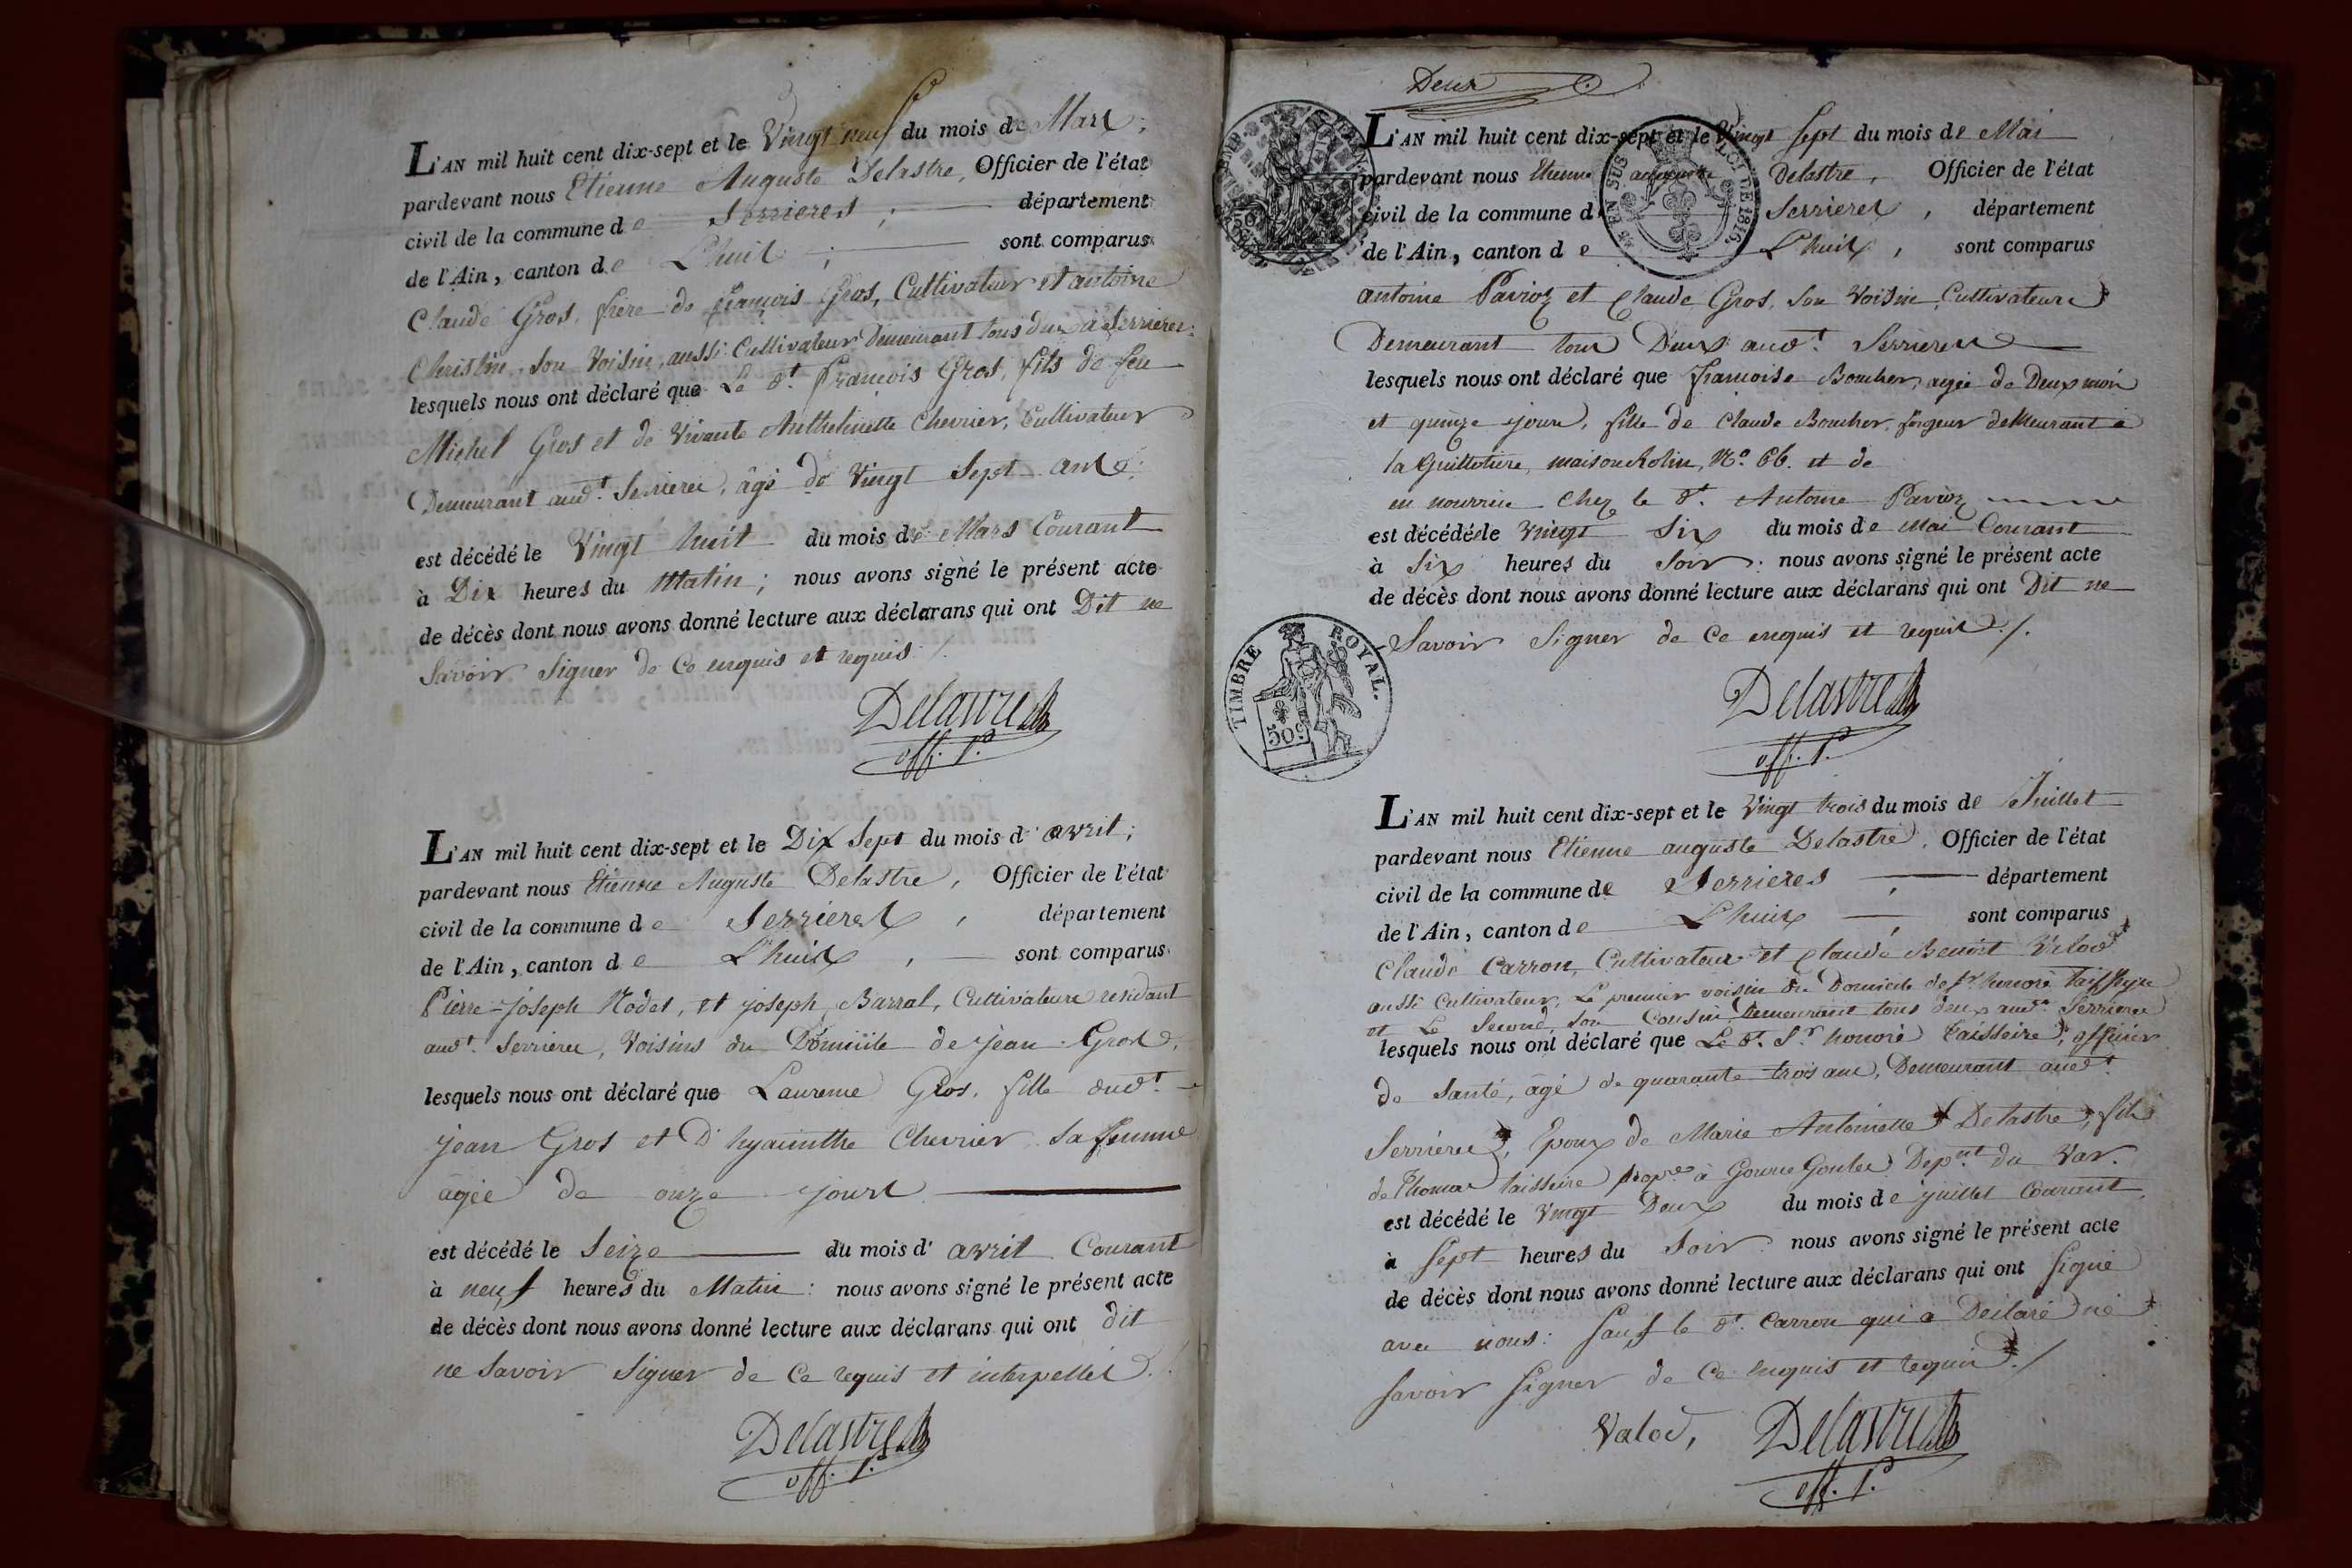 L'AN mil huit cent dix-sept et le Vingt neuf du mois de Mars,
pardevant nous Etienne Auguste Delastre, Officier de l'état
civil de la commune de Serrieres, département
de l'Ain, canton de L'huis, sont comparus
Claude Gros, frère de françois Gros, Cultivateur et antoine
Christin, son Voisin, aussi Cultivateur Demeurant tous deux à Serrieres
lesquels nous ont déclaré que Le dt. françois Gros, fils de feu
Michel Gros et de Vivante Anthelmette Chevrier, Cultivateur
Demeurant audt. Serrieres, âgé de Vingt Sept ans
est décédé le Vingt huit du mois de Mars Courant
à Dix heures du Matin; nous avons signé le présent acte
de décès dont nous avons donné lecture aux déclarans qui ont Dit ne
Savoir Signer de Ce enquis et requis ./.
Delastre
off. P.
L'AN mil huit cent dix-sept et le Dix Sept du mois d'avril;
pardevant nous Etienne Auguste Delastre, Officier de l'état
civil de la commune de Serrieres, département
de l'Ain, canton de L'huis, sont comparus
Pierre-joseph Nodet, et joseph Barral, Cultivateurs residant
audt. Serrieres, Voisins du Domicile de jean Gros
lesquels nous ont déclaré que Laurence Gros, fille dudt.
jean Gros et D'hyacinthe Chevrier sa femme
âgée de onze jours
est décédé le Seize du mois d'avril Courant
à neuf heures du Matin: nous avons signé le présent acte
de décès dont nous avons donné lecture aux déclarans qui ont dit
ne Savoir Signer de Ce requis et interpellés ./.
Delastre
off. P.
Deux
L'AN mil huit cent dix-sept et le Vingt Sept du mois de Mai
pardevant nous Etienne auguste Delastre, Officier de l'état
civil de la commune de Serrieres, département
de l'Ain, canton de L'huis, sont comparus
EN SUS LOI DE 1816.
antoine Pavioz et Claude Gros, son Voisin, Cultivateurs
Demeurant tous Deux audt. Serrieres
lesquels nous ont déclaré que francoise Boucher, agée de Deux mois
et quinze jours, fille de Claude Boucher, forgeur demeurant à
la Guillotiere, maison Rolin, No. 66. et de
en nourrice chez le dt. Antoine Pavioz
est décédée le Vingt Six du mois de Mai Courant
à Six heures du Soir: nous avons signé le présent acte
de décès dont nous avons donné lecture aux déclarans qui ont Dit ne
Savoir Signer de Ce enquis et requis ./.
TIMBRE ROYAL.
50c
Delastre
off. P.
L'AN mil huit cent dix-sept et le Vingt trois du mois de Juillet
pardevant nous Etienne auguste Delastre, Officier de l'état
civil de la commune de Serrieres, département
de l'Ain, canton de L'huis, sont comparus
Claude Carron, Cultivateur et Claude Benoit Valod
aussi Cultivateur, Le premier voisin du Domicile de Sr. honoré
et Le Second, son Cousin Demeurant tous deux audt. Serrieres
lesquels nous ont déclaré que Le dt. Sr. honoré taisseire, officier
de Santé, âgé de quarante trois ans, Demeurant audt.
Serrieres, Epoux de Marie Antoinette Delastre, fils
de Thomas taisseire propre. à Dépnt. du Var.
est décédé le Vingt Deux du mois de juillet Courant
à Sept heures du Soir: nous avons signé le présent acte
de décès dont nous avons donné lecture aux déclarans qui ont Signé
avec nous: Sauf le dt. Carron qui a Déclaré ne
Savoir Signer de Ce enquis et requis ./.
Valod, Delastre
off. P.